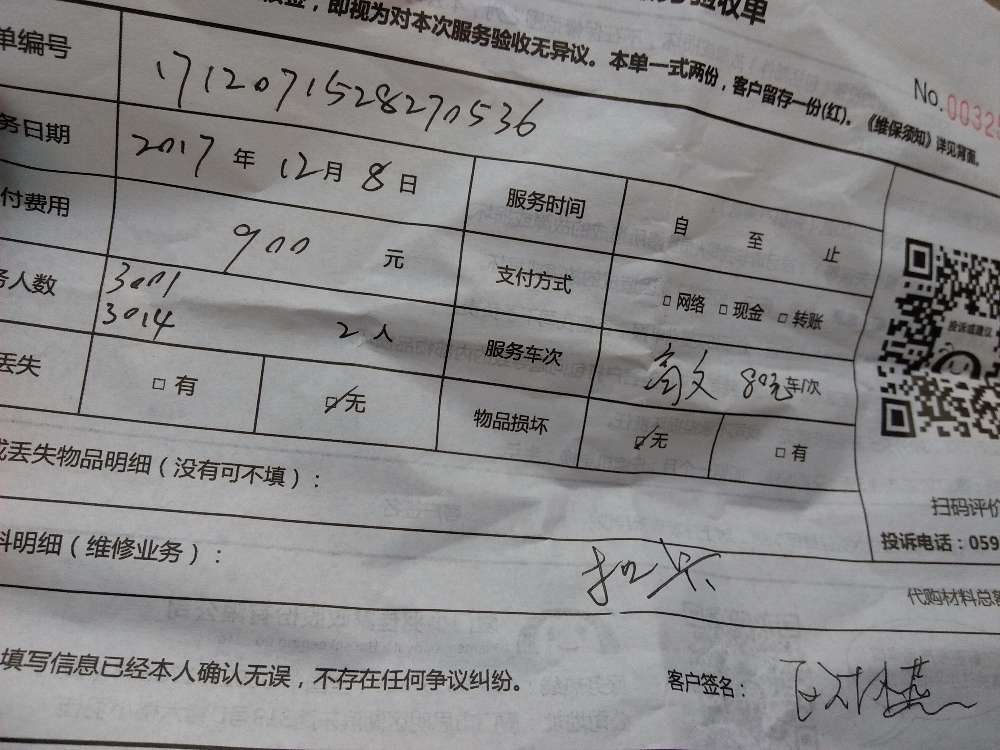 务验收单
签，即视为对本次服务验收无异议。本单一式两份，客户留存一份(红)。《维保须知》详见背面。
No. 0032
单编号 1712071528270536
务日期 2017 年 12 月 8 日 服务时间 自 至 止
付费用 900 元 支付方式 □ 网络 □ 现金 □ 转账
务人数 3001 3014 2 人 服务车次 车/次
丢失 □ 有 ☑ 无 物品损坏 ☑ 无 □ 有
投诉或建议
或丢失物品明细（没有可不填）：
扫码评价
料明细（维修业务）：
投诉电话：059
代购材料总额
填写信息已经本人确认无误，不存在任何争议纠纷。 客户签名：